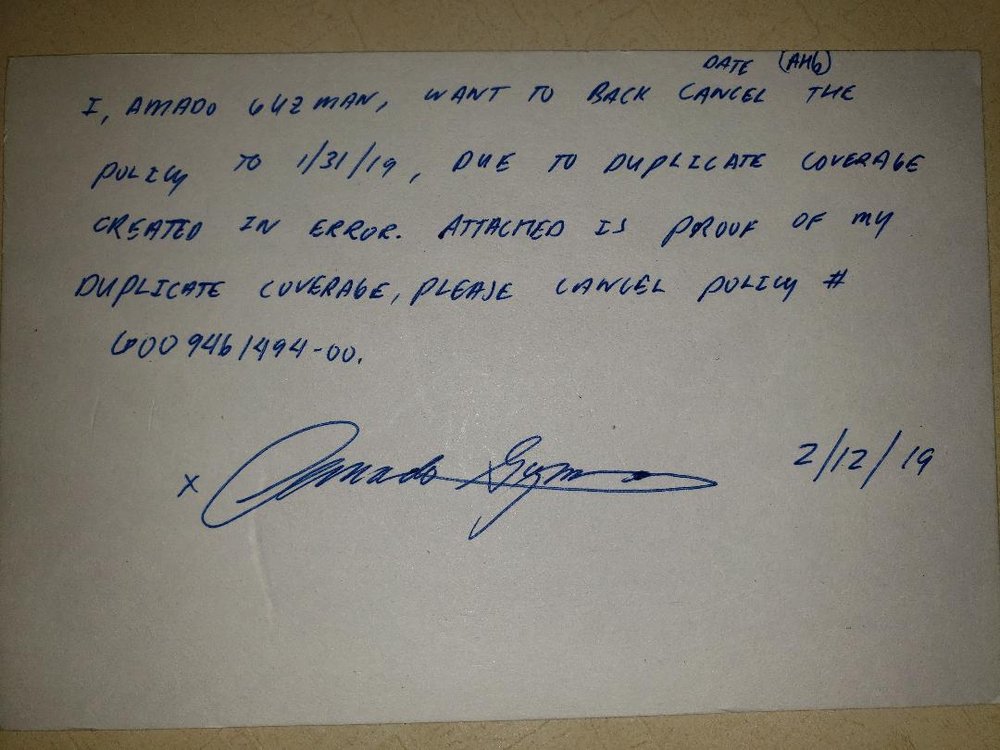 DATE (AHG)
I, AMADO GUZMAN, WANT TO BACK CANCEL THE
POLICY TO 1/31/19, DUE TO DUPLICATE COVERAGE
CREATED IN ERROR. ATTACHED IS PROOF OF MY
DUPLICATE COVERAGE, PLEASE CANCEL POLICY #
G00 9461494-00.
x Amado Guzman 2/12/19